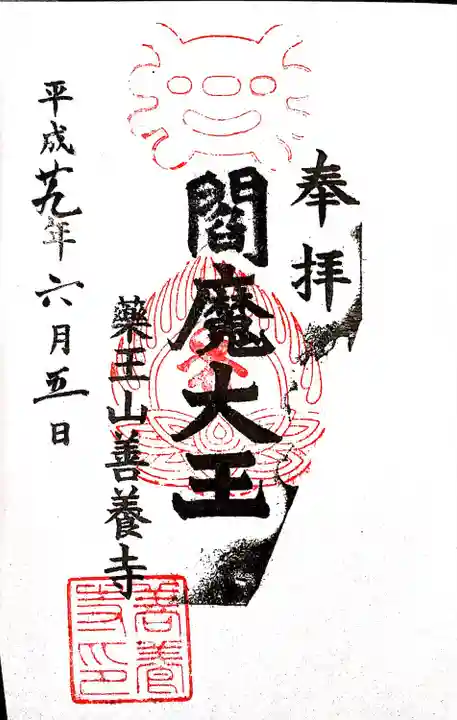 奉拝
閻魔大王
藥王山善養寺
平成廿九年六月五日
善養
寺印